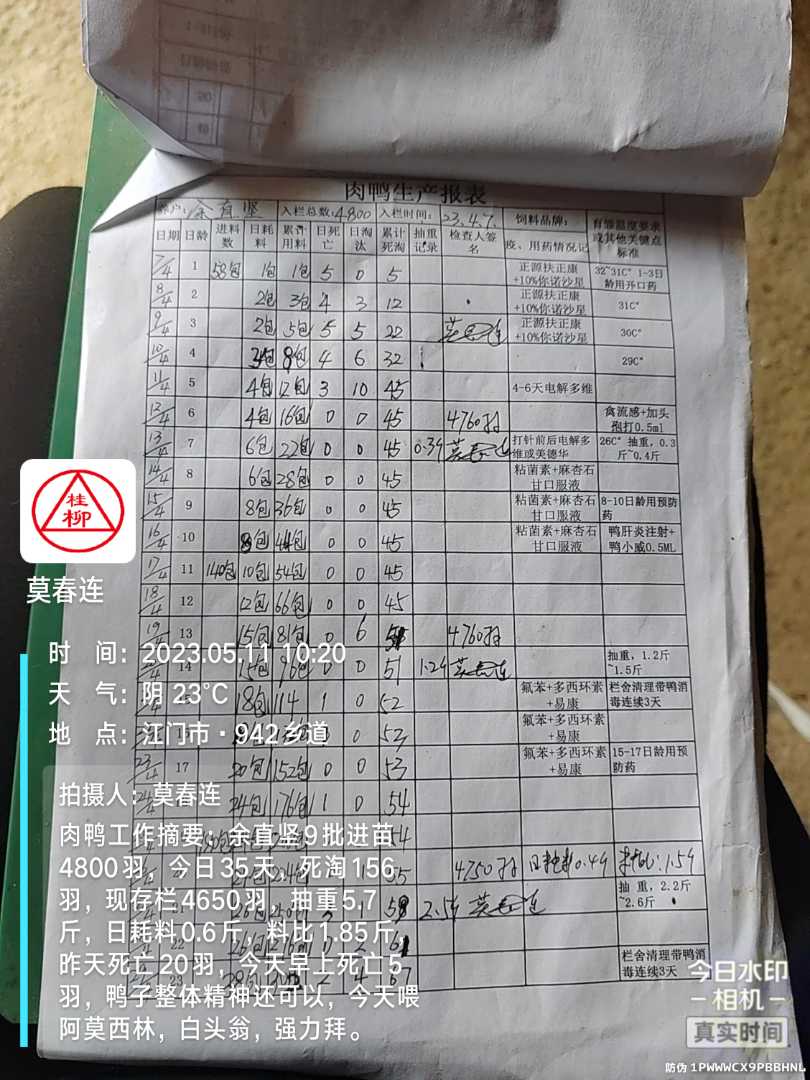 肉鸭生产报表
余直坚 入栏总数:4800 入栏时间: 23.4.7. 饲料品牌: 有温温度要求
日期 日龄 进料数 日耗料 累计用料 日死亡 日淘汰 累计死淘 抽重记录 检查人签名 疫、用药情况记 或其他关键点标准
7/4 1 58包 1包 1包 5 0 5 正源扶正康+10%你诺沙星 32~31C° 1-3日龄用开口药
8/4 2 2包 3包 4 3 12 正源扶正康+10%你诺沙星 31C°
9/4 3 2包 5包 5 5 22 莫春连 正源扶正康+10%你诺沙星 30C°
10/4 4 3包 8包 4 6 32 29C°
11/4 5 4包 12包 3 10 45 4-6天电解多维
12/4 6 4包 16包 0 0 45 4760羽 禽流感+加头孢打0.5ml
13/4 7 6包 22包 0 0 45 0.39 莫春连 打针前后电解多维或美德华 26C° 抽重，0.3斤~0.4斤
14/4 8 6包 28包 0 0 45 粘菌素+麻杏石甘口服液
15/4 9 8包 36包 0 0 45 粘菌素+麻杏石甘口服液 8-10日龄用预防药
16/4 10 8包 44包 0 0 45 粘菌素+麻杏石甘口服液 鸭肝炎注射+鸭小威0.5ML
17/4 11 140包 10包 54包 0 0 45
18/4 12 12包 66包 0 0 45
19/4 13 15包 81包 0 6 51 4760羽
14 15包 96包 0 0 51 莫春连 抽重，1.2斤~1.5斤
18包 114 1 0 52 氟苯+多西环素+易康 栏舍清理带鸭消毒连续3天
0 53 氟苯+多西环素+易康
23/4 17 20包 152包 0 0 53 氟苯+多西环素+易康 15-17日龄用预防药
24包 176包 1 0 54
54
4750羽
莫春连 抽重，2.2斤~2.6斤
22
23 67 栏舍清理带鸭消毒连续3天
桂柳
莫春连
时 间：2023.05.11 10:20
天 气：阴 23℃
地 点：江门市·942乡道
拍摄人：莫春连
肉鸭工作摘要：余直坚9批进苗
4800羽，今日35天，死淘156
羽，现存栏4650羽，抽重5.7
斤，日耗料0.6斤，料比1.85斤，
昨天死亡20羽，今天早上死亡5
羽，鸭子整体精神还可以，今天喂
阿莫西林，白头翁，强力拜。
今日水印
相机
真实时间
防伪 1PWWWCX9PBBHNL